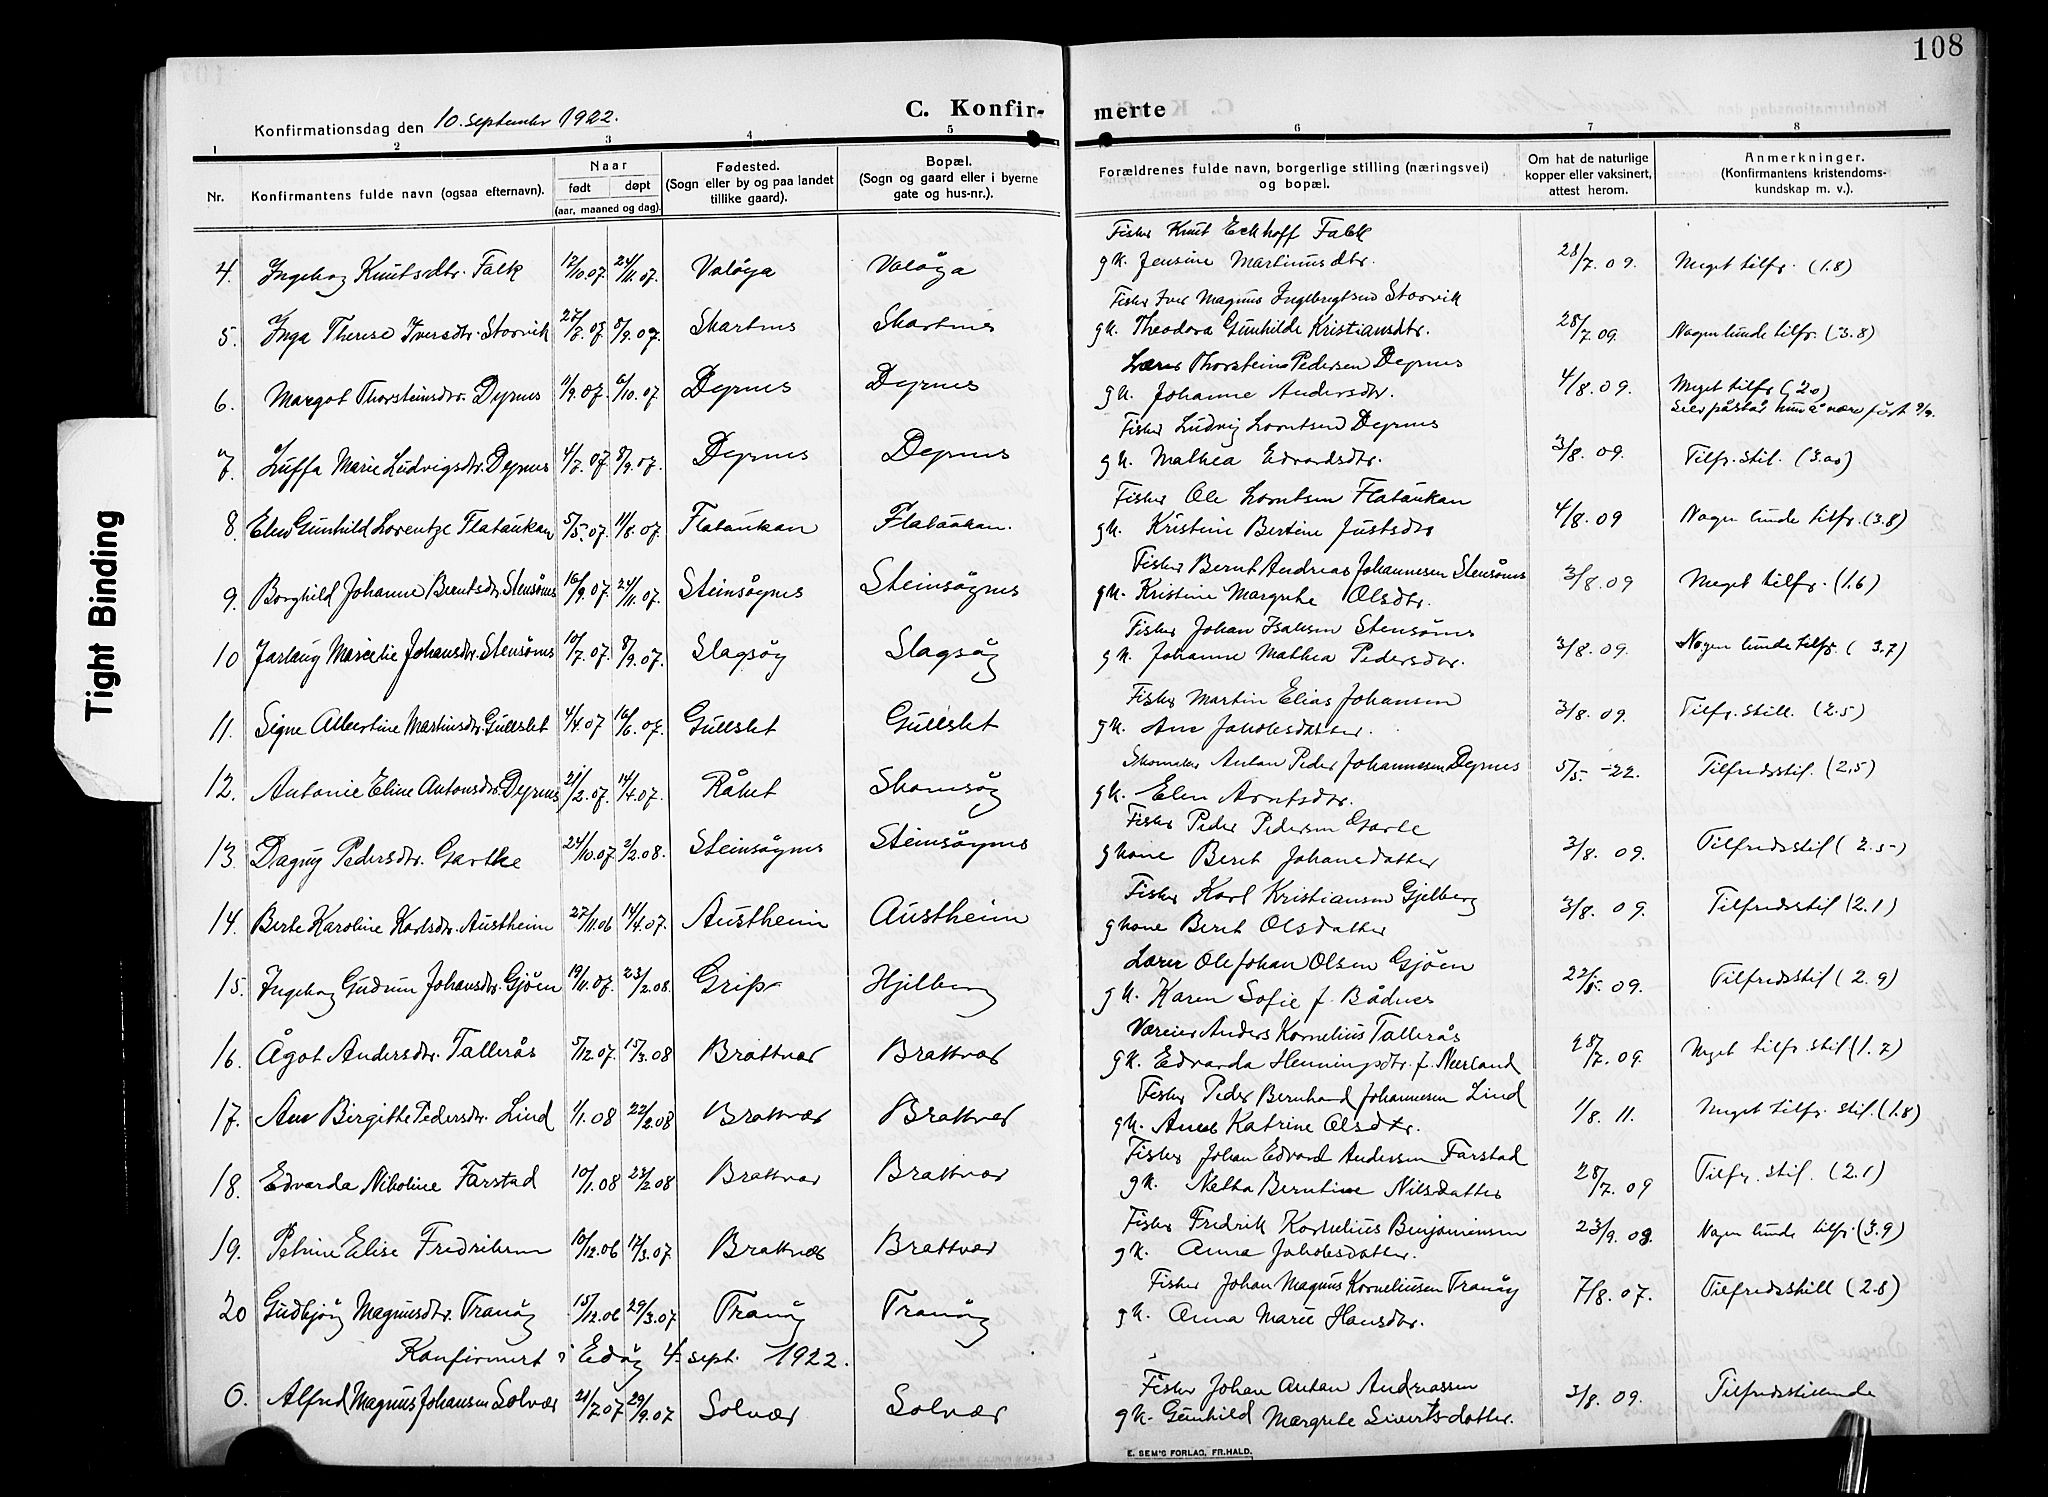 108
Konfirmationsdag den 10. september 1922.
C. Konfir- merte
1 2 3 4 5 6 7 8
Nr. Konfirmantens fulde navn (ogsaa efternavn). Naar født døpt (aar, maaned og dag). Fødested. (Sogn eller by og paa landet tillike gaard). Bopæl. (Sogn og gaard eller i byerne gate og hus-nr.). Forældrenes fulde navn, borgerlige stilling (næringsvei) og bopæl. Om hat de naturlige kopper eller vaksinert, attest herom. Anmerkninger. (Konfirmantens kristendoms- kundskap m. v.).
Fisker Knut Eckhoff Falck
4. Ingeborg Knutsdtr. Falk 12/10.07. 24/11.07. Valöya Valöya gk. Jensine Martinusdtr. 28/7.09. Meget tilfr. (1.8)
Fisker Iver Magnus Ingebrigtsen Storvik
5. Inga Therese Iversdtr. Storvik 27/7.07 8/9.07. Skartnes Skartnes gk. Theodora Gunhilde Kristiansdtr. 28/7.09. Nogen lunde tilfr. (3.8)
Lærer Thorstein Pedersen Dyrnes
6. Margot Thorsteinsdtr. Dyrnes 11/9.07. 6/10.07 Dyrnes Dyrnes gk. Johanne Andersdtr. 4/8.09. Meget tilfr (2.0)
Selv påstår hun å være født 9/9.
Fisker Ludvig Lorntsen Dyrnes
7. Luffa Marie Ludvigsdtr. Dyrnes 4/7.07 8/9.07. Dyrnes Dyrnes gk. Mathea Edvardsdtr. 3/8.09. Tilfr. stil. (3.00)
Fisker Ole Lorntsen Flataukan
8. Elen Gunhild Lorentze Flataukan 5/5.07. 11/8.07. Flataukan Flataukan. gk. Kristine Bertine Justsdtr 4/8.09 Nogen lunde tilfr. (3.8)
Fisker Bernt Andreas Johannesen Stensönes
9. Borghild Johanne Berntsdtr. Stensönes 16/9.07. 24/11.07. Steinsöynes Steinsöynes gk. Kristine Margrete Olsdtr. 3/8.09 Meget tilfr. (1.6)
Fisker Johan Isaksen Stensönes
10 Jaslaug Marselie Johansdtr. Stensönes 10/7.07. 8/9.07. Slagsöy Slagsöy gk. Johanne Mathea Pedersdtr. 3/8.09. Nogen lunde tilfr. (3.7)
Fisker Martin Elias Johansen
11. Signe Albertine Martinsdtr. Gullslet 4/4.07 16/6.07. Gullslet Gullslet gk. Ane Jakobsdatter. 3/8.09. Tilfr. still. (2.5)
Skomaker Anton Peder Johannessen Dyrnes
12. Antonie Eline Antonsdtr. Dyrnes 21/2.07. 14/4.07. Råket Skomsöy gk. Elen Arntsdtr. 5/5.-22. Tilfredsstil. (2.5)
Fisker Peder Pedersen Garte
13. Dagny Pedersdtr. Gartke 24/10.07 2/2.08. Steinsöynes Steinsöynes gkone Beret Johansdatter 3/8.09. Tilfredsstil (2.5)
Fisker Karl Kristiansen Gjelberg
14. Berte Karoline Karlsdtr. Austheim 27/11.06 14/4.07. Austheim Austheim gkone Berit Olsdatter 3/8.09. Tilfredsstil (2.1)
Lærer Ole Johan Olsen Gjöen
15. Ingeborg Gudrun Johansdtr. Gjöen 19/11.07. 23/2.08. Grip Hjelberg gk. Karen Sofie f. Bådnes 22/5.09. Tilfredsstil (2.9)
Væreier Anders Kornelius Tallerås
16. Ågot Andersdtr. Tallerås 5/12.07. 15/3.08 Brattvær Brattvær gk. Edvarda Henningsdtr. f. Neerland 28/7.09. Meget tilfr. stil (1.7)
Fisker Peder Bernhard Johannesen Lind
17. Ane Birgitte Pedersdtr. Lind 1/1.08 22/2.08 Brattvær Brattvær gk. Anne Katrine Olsdtr. 1/8.11. Meget tilfr. stil. (1.8)
Fisker Johan Edvard Andersen Farstad
18. Edvarda Nikoline Farstad 10/1.08 23/2.08 Brattvær Brattvær gk. Netta Berntine Nilsdatter 28/7.09 Tilfr. stil. (2.1)
Fisker Fredrik Kornelius Benjaminsen
19. Petrine Elise Fredriksen 10/12.06 17/3.07. Brattvær Brattvær gk. Anna Jakobsdatter. 23/9.09. Nogen lunde tilfr (3.9)
Fisker Johan Magnus Korneliusen Tranöy
20 Gudbjörg Magnusdtr. Tranöy 15/12.06 29/3.07 Tranöy Tranöy gk. Anna Marie Hansdtr. 7/8.07. Tilfredsstill (2.8)
Konfirmert i Edöy 4. sept. 1922.
Fisker Johan Anton Andreassen
0. Alfred Magnus Johansen Solvær 21/7.07 29/9.07 Solvær Solvær gk. Gunhild Margrete Sivertsdatter. 3/8.09. Tilfredsstillende
E. SEM'S FORLAG, FR.HALD.
Tight Binding